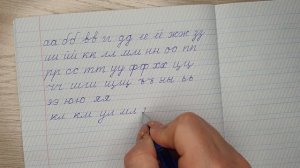 аа бб вв г дд её ёё жж зз
ии йй кк лл мм нн оо пп
рр сс тт уу фф хх цц
чч шш щщ ъъ ыы ьь
ээ юю яя
кл км ул мл